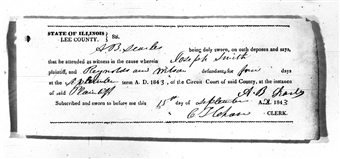 STATE OF ILLINOIS
LEE COUNTY. } Sct.
A B Searles being duly sworn, on oath deposes and says,
that he attended as witness in the cause wherein Joseph Smith
plaintiff, and Reynolds and Wilson defendant, for four days
at the term A. D. 1843, of the Circuit Court of said County, at the instance
of said Plaintiff
Subscribed and sworn to before me this 18th day of September A. D. 1843
A. B. Searles
CLERK.